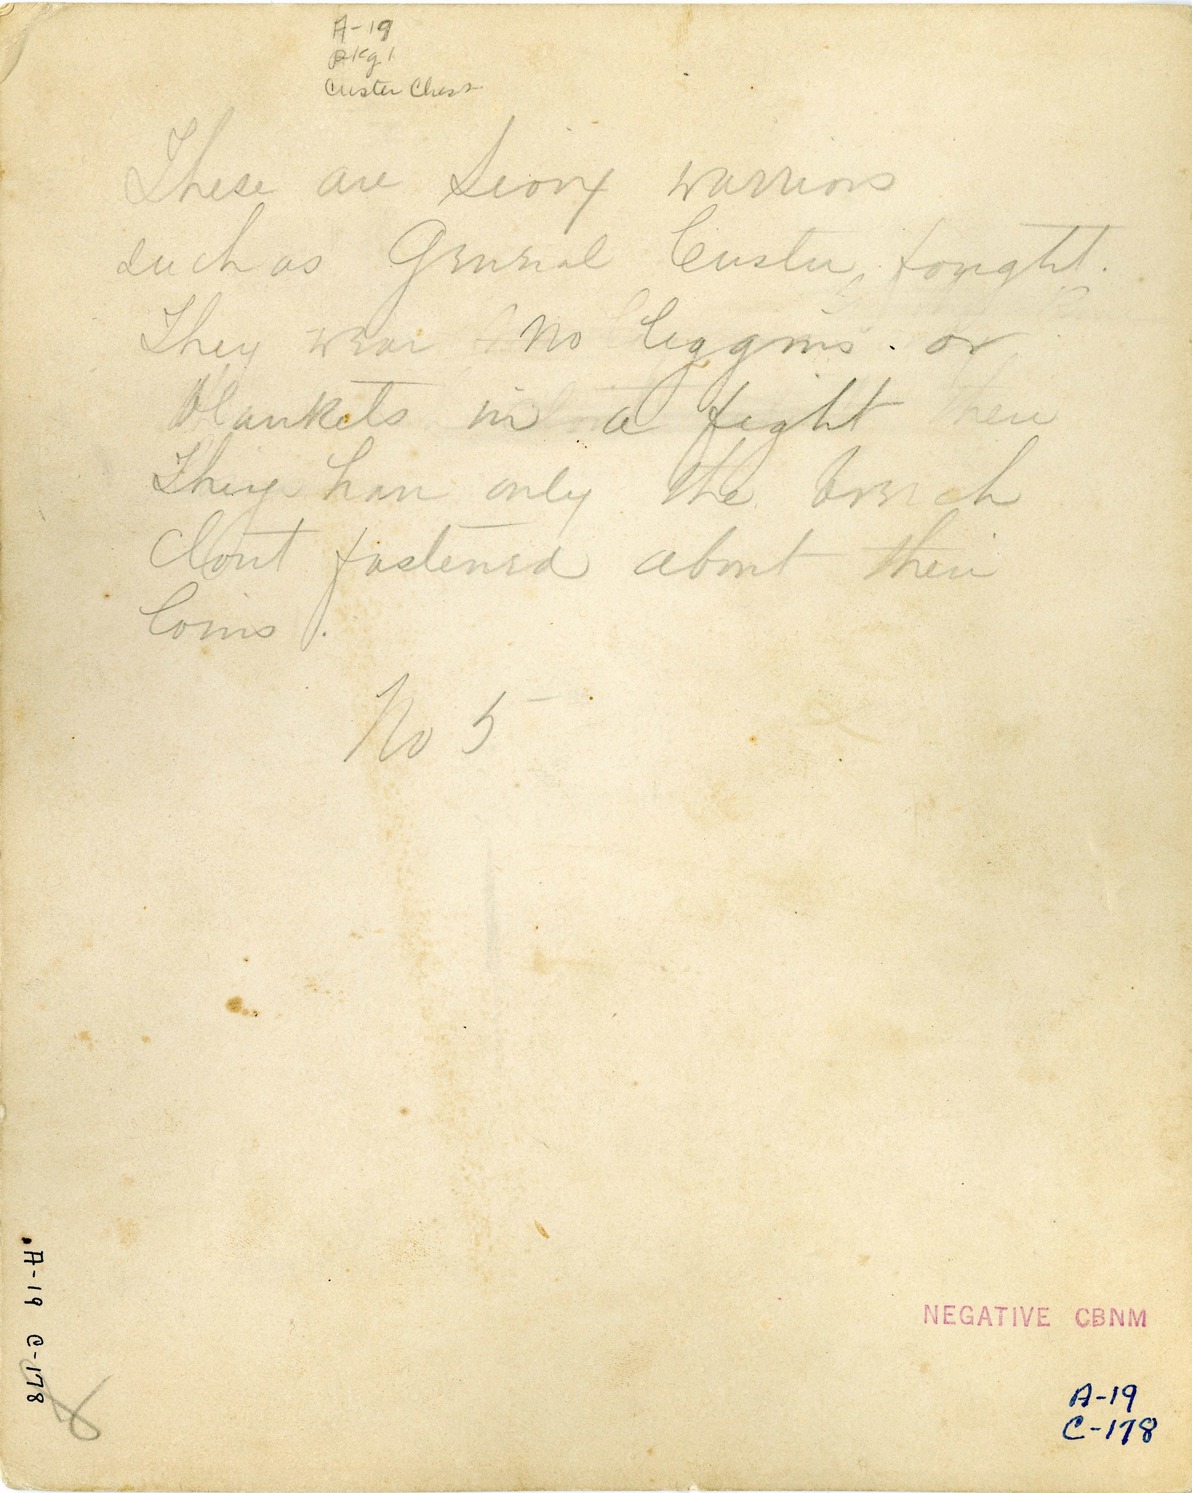 A-19
Pkg 1
Custer Chest
These are Sioux warriors
such as General Custer fought.
They wear no leggins or
blankets in a fight then
They have only the breech
clout fastened about their
loins.
No 5
A-19 C-178
NEGATIVE CBNM
A-19
C-178